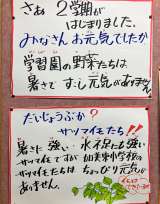 さぁ 2学期が
はじまりました。
みなさんお元気でしたか
学習園の野菜たちは
暑さで すこし元気がありません。
だいじょうぶか?
サツマイモたち!!
暑さに強い・水不足にも強い
サツマイモですが 加美東小学校の
サツマイモたちは ちょっぴり元気が
ありません。